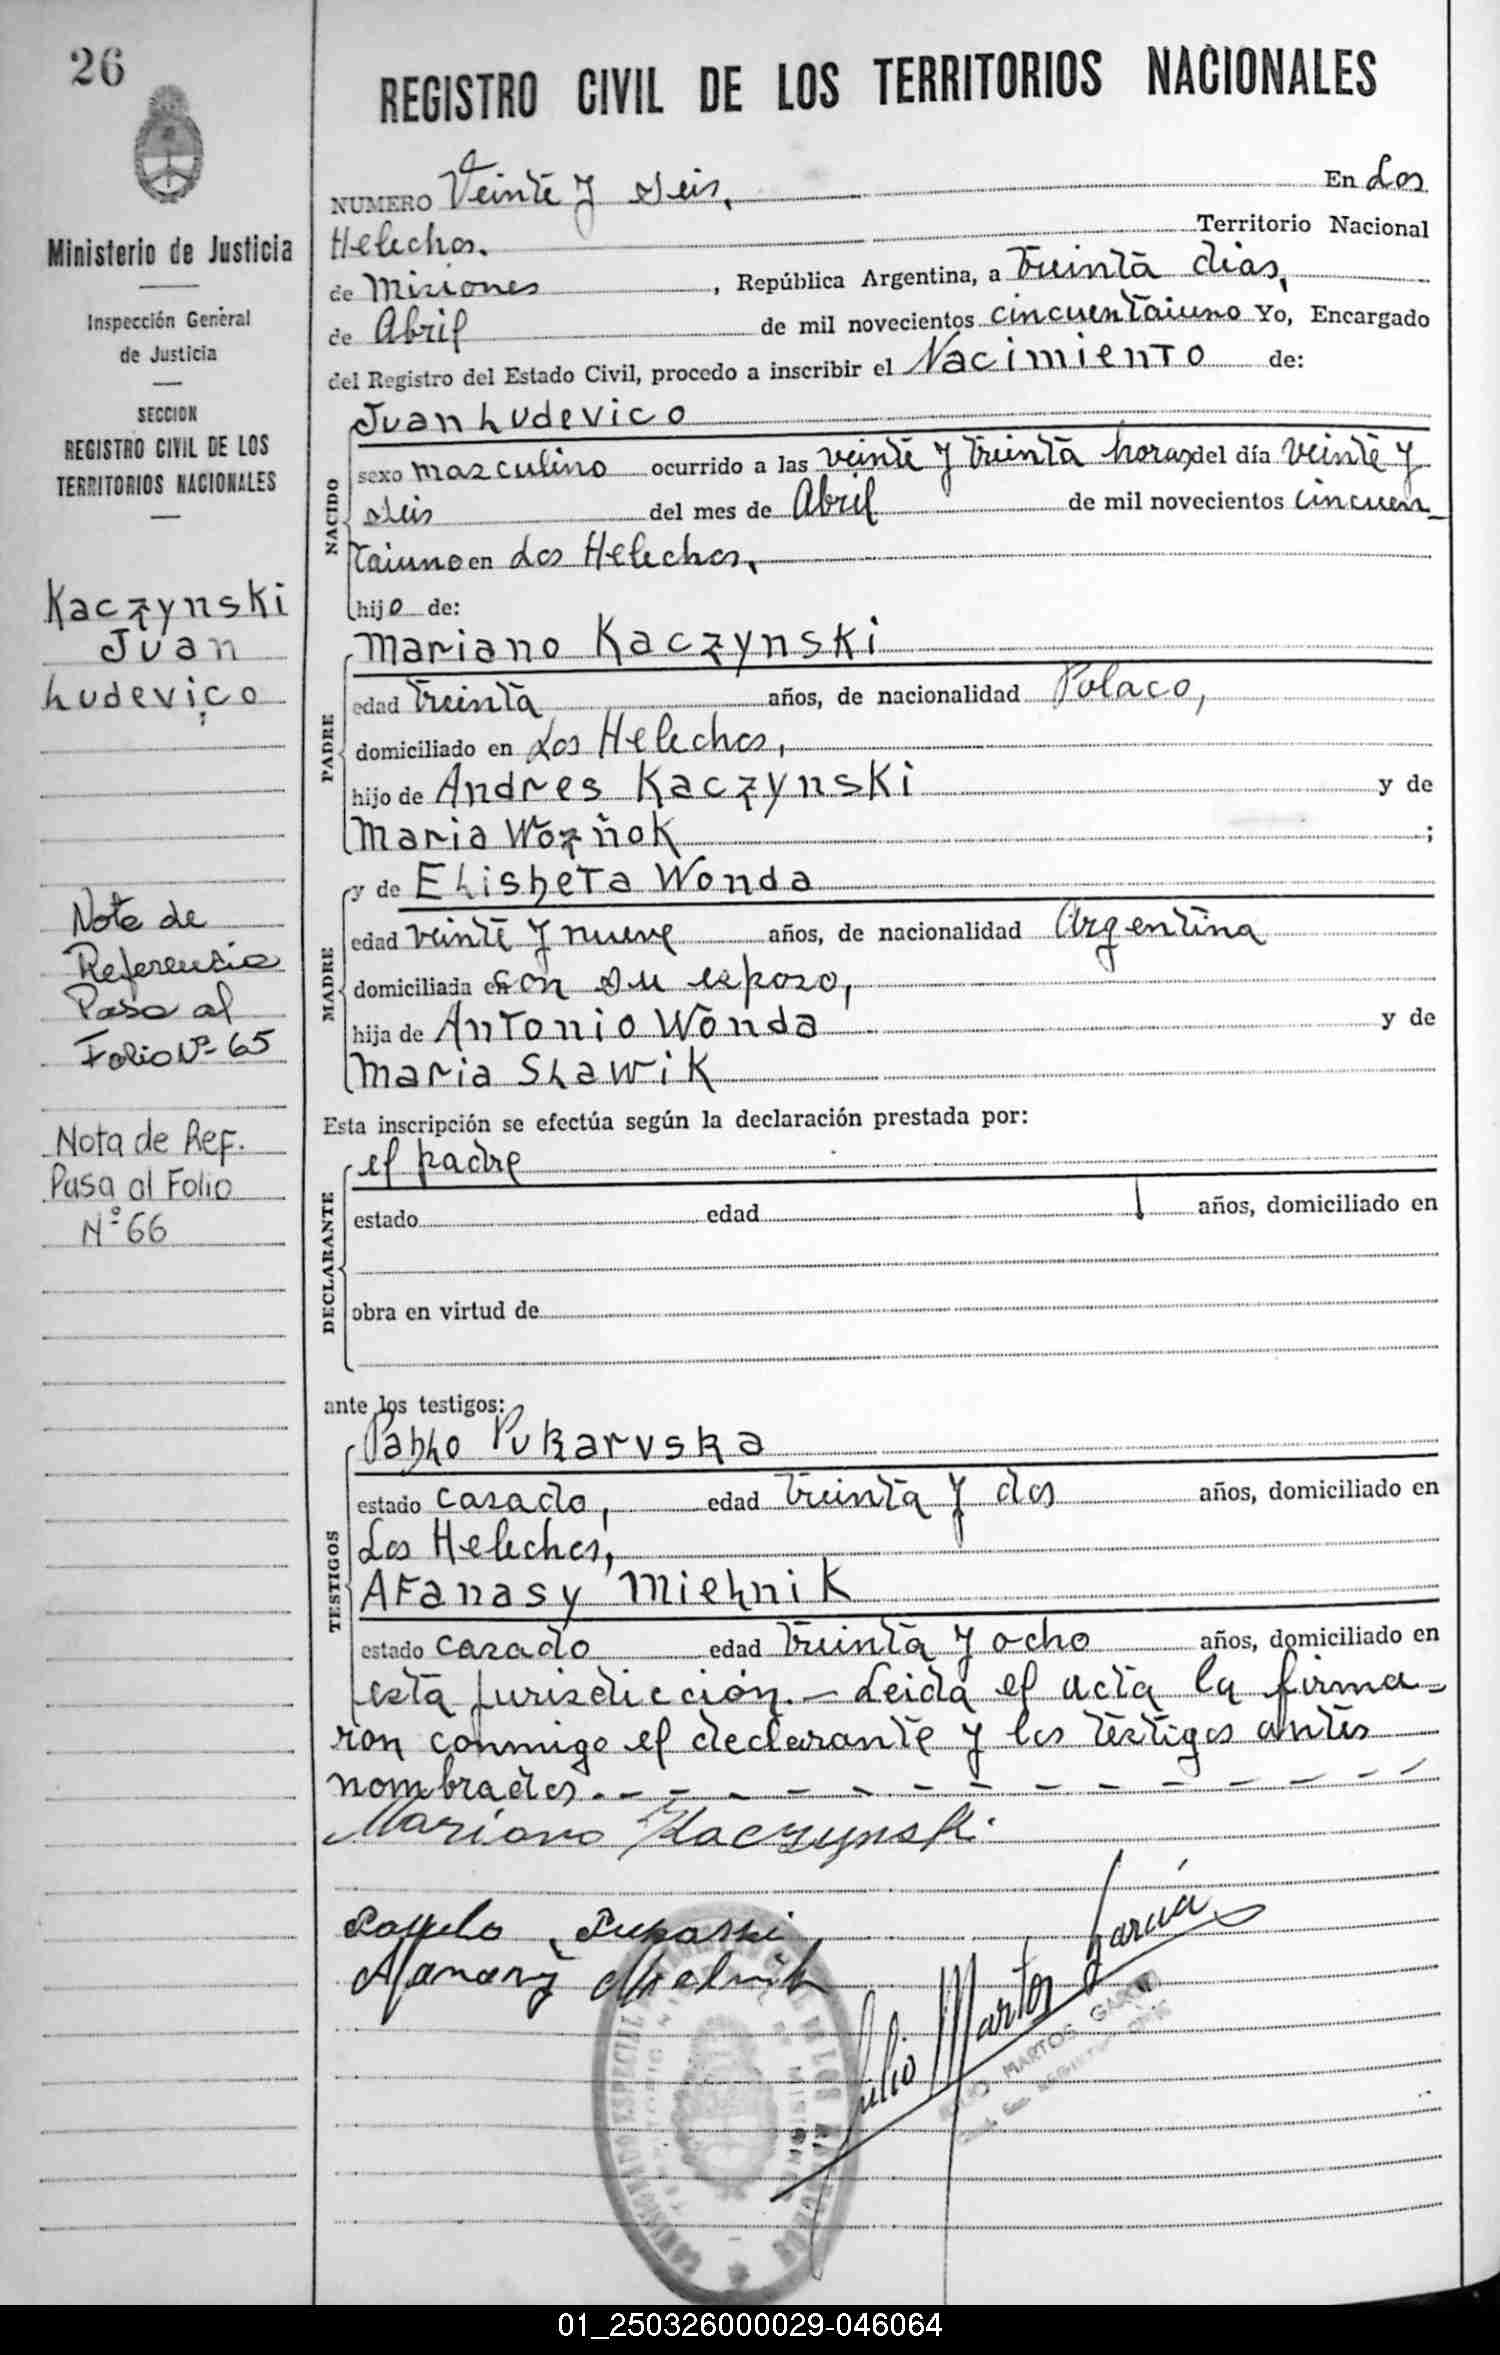 26
REGISTRO CIVIL DE LOS TERRITORIOS NACIONALES
Ministerio de Justicia
Inspección General
de Justicia
SECCION
REGISTRO CIVIL DE LOS
TERRITORIOS NACIONALES
Kaczynski
Juan
Ludevico
Nota de
Referencia
Pasa al
Folio Nº 65
Nota de Ref.
Pasa al Folio
Nº 66
NUMERO Veinte y seis, En Los
Helechos. Territorio Nacional
de Misiones, República Argentina, a treinta dias,
de Abril de mil novecientos cincuentaiuno Yo, Encargado
del Registro del Estado Civil, procedo a inscribir el Nacimiento de:
NACIDO
Juan Ludevico
sexo masculino ocurrido a las veinte y treinta horas del día veinte y
seis del mes de Abril de mil novecientos cincuen-
taiuno en Los Helechos,
hijo de:
PADRE
Mariano Kaczynski
edad treinta años, de nacionalidad Polaco,
domiciliado en Los Helechos,
hijo de Andres Kaczynski y de
Maria Woźñok;
MADRE
y de Elisbeta Wonda
edad veinte y nueve años, de nacionalidad Argentina
domiciliada en con su esposo,
hija de Antonio Wonda y de
Maria Slawik
Esta inscripción se efectúa según la declaración prestada por:
DECLARANTE
el padre
estado edad años, domiciliado en
obra en virtud de
ante los testigos:
TESTIGOS
Pablo Pukarvska
estado casado, edad treinta y dos años, domiciliado en
Los Helechos,
Afanasy Mielnik
estado casado edad treinta y ocho años, domiciliado en
esta jurisdicción.- Leida el acta la firma-
ron conmigo el declarante y los testigos antes
nombrados.
Mariano Kaczynski
Afanasy Mielnik
Julio Martos García
JULIO MARTOS GARCIA
01_250326000029-046064